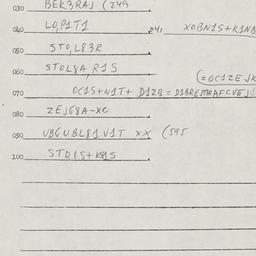 030 BEK3RAJ (249
040 LO,P1T1 041 XOBN1S+K1NB
050 STO,L83R
060 STOL8A,R1S
(=OC1ZEJK
070 OC1S+N1T+ D1ZB=
080 ZEJG8A-XC
090 UBGUBL81V1T XX (595
100 STD1S+K81S